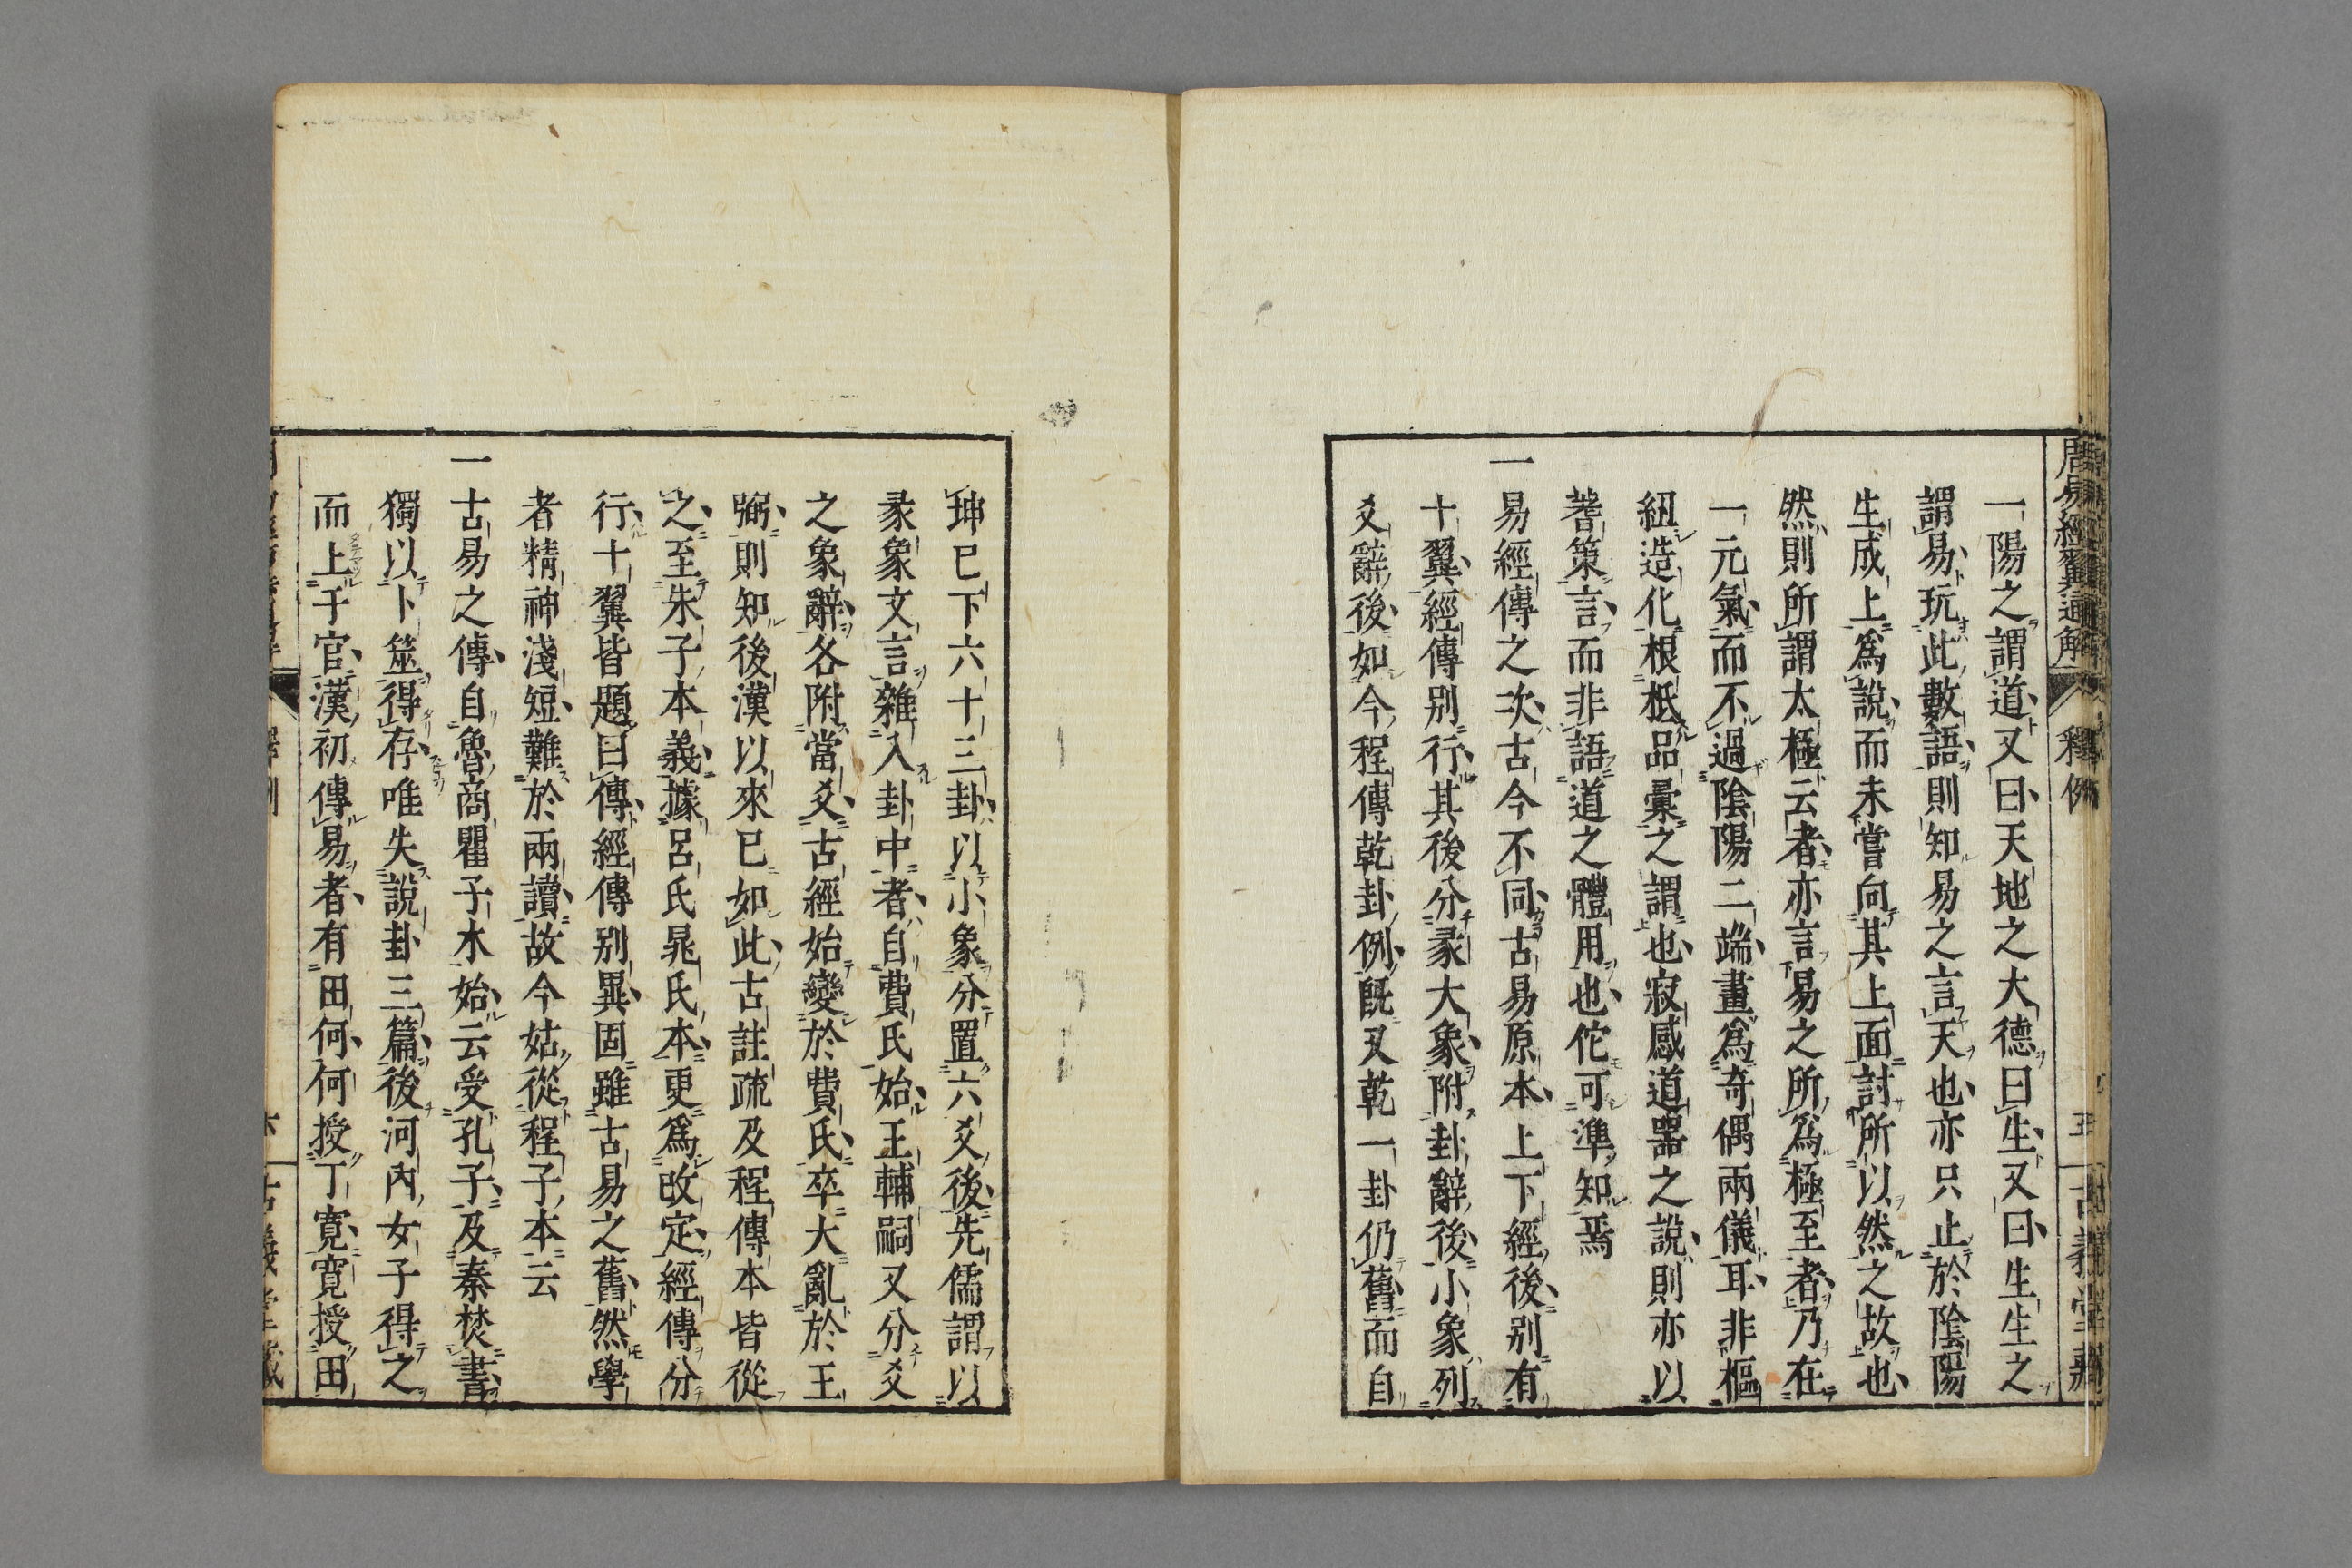 周易經翼通解 釋例 五 古義堂藏
一陽之謂道又曰天地之大德曰生又曰生生之
謂易玩此數語則知易之言天也亦只止於陰陽
生成上爲說而未嘗向其上面討所以然之故也
然則所謂太極云者亦言易之所爲極至者乃在
一元氣而不過陰陽二端畫爲奇偶兩儀耳非樞
紐造化根柢品彙之謂也寂感道噐之說則亦以
蓍策言而非語道之體用也佗可準知焉
一易經傳之次古今不同古易原本上下經後别有
十翼經傳别行其後分彖大象附卦辭後小象列
爻辭後如今程傳乾卦例旣又乾一卦仍舊而自
坤已下六十三卦以小象分置六爻後先儒謂以
彖象文言雜入卦中者自費氏始王輔嗣又分爻
之象辭各附當爻古經始變於費氏卒大亂於王
弼則知後漢以來已如此古註疏及程傳本皆從
之至朱子本義據呂氏晁氏本更爲改定經傳分
行十翼皆題曰傳經傳别異固雖古易之舊然學
者精神淺短難於兩讀故今姑從程子本云
一古易之傳自魯商瞿子木始云受孔子及秦焚書
獨以卜筮得存唯失說卦三篇後河內女子得之
而上于官漢初傳易者有田何何授丁寬寬授田